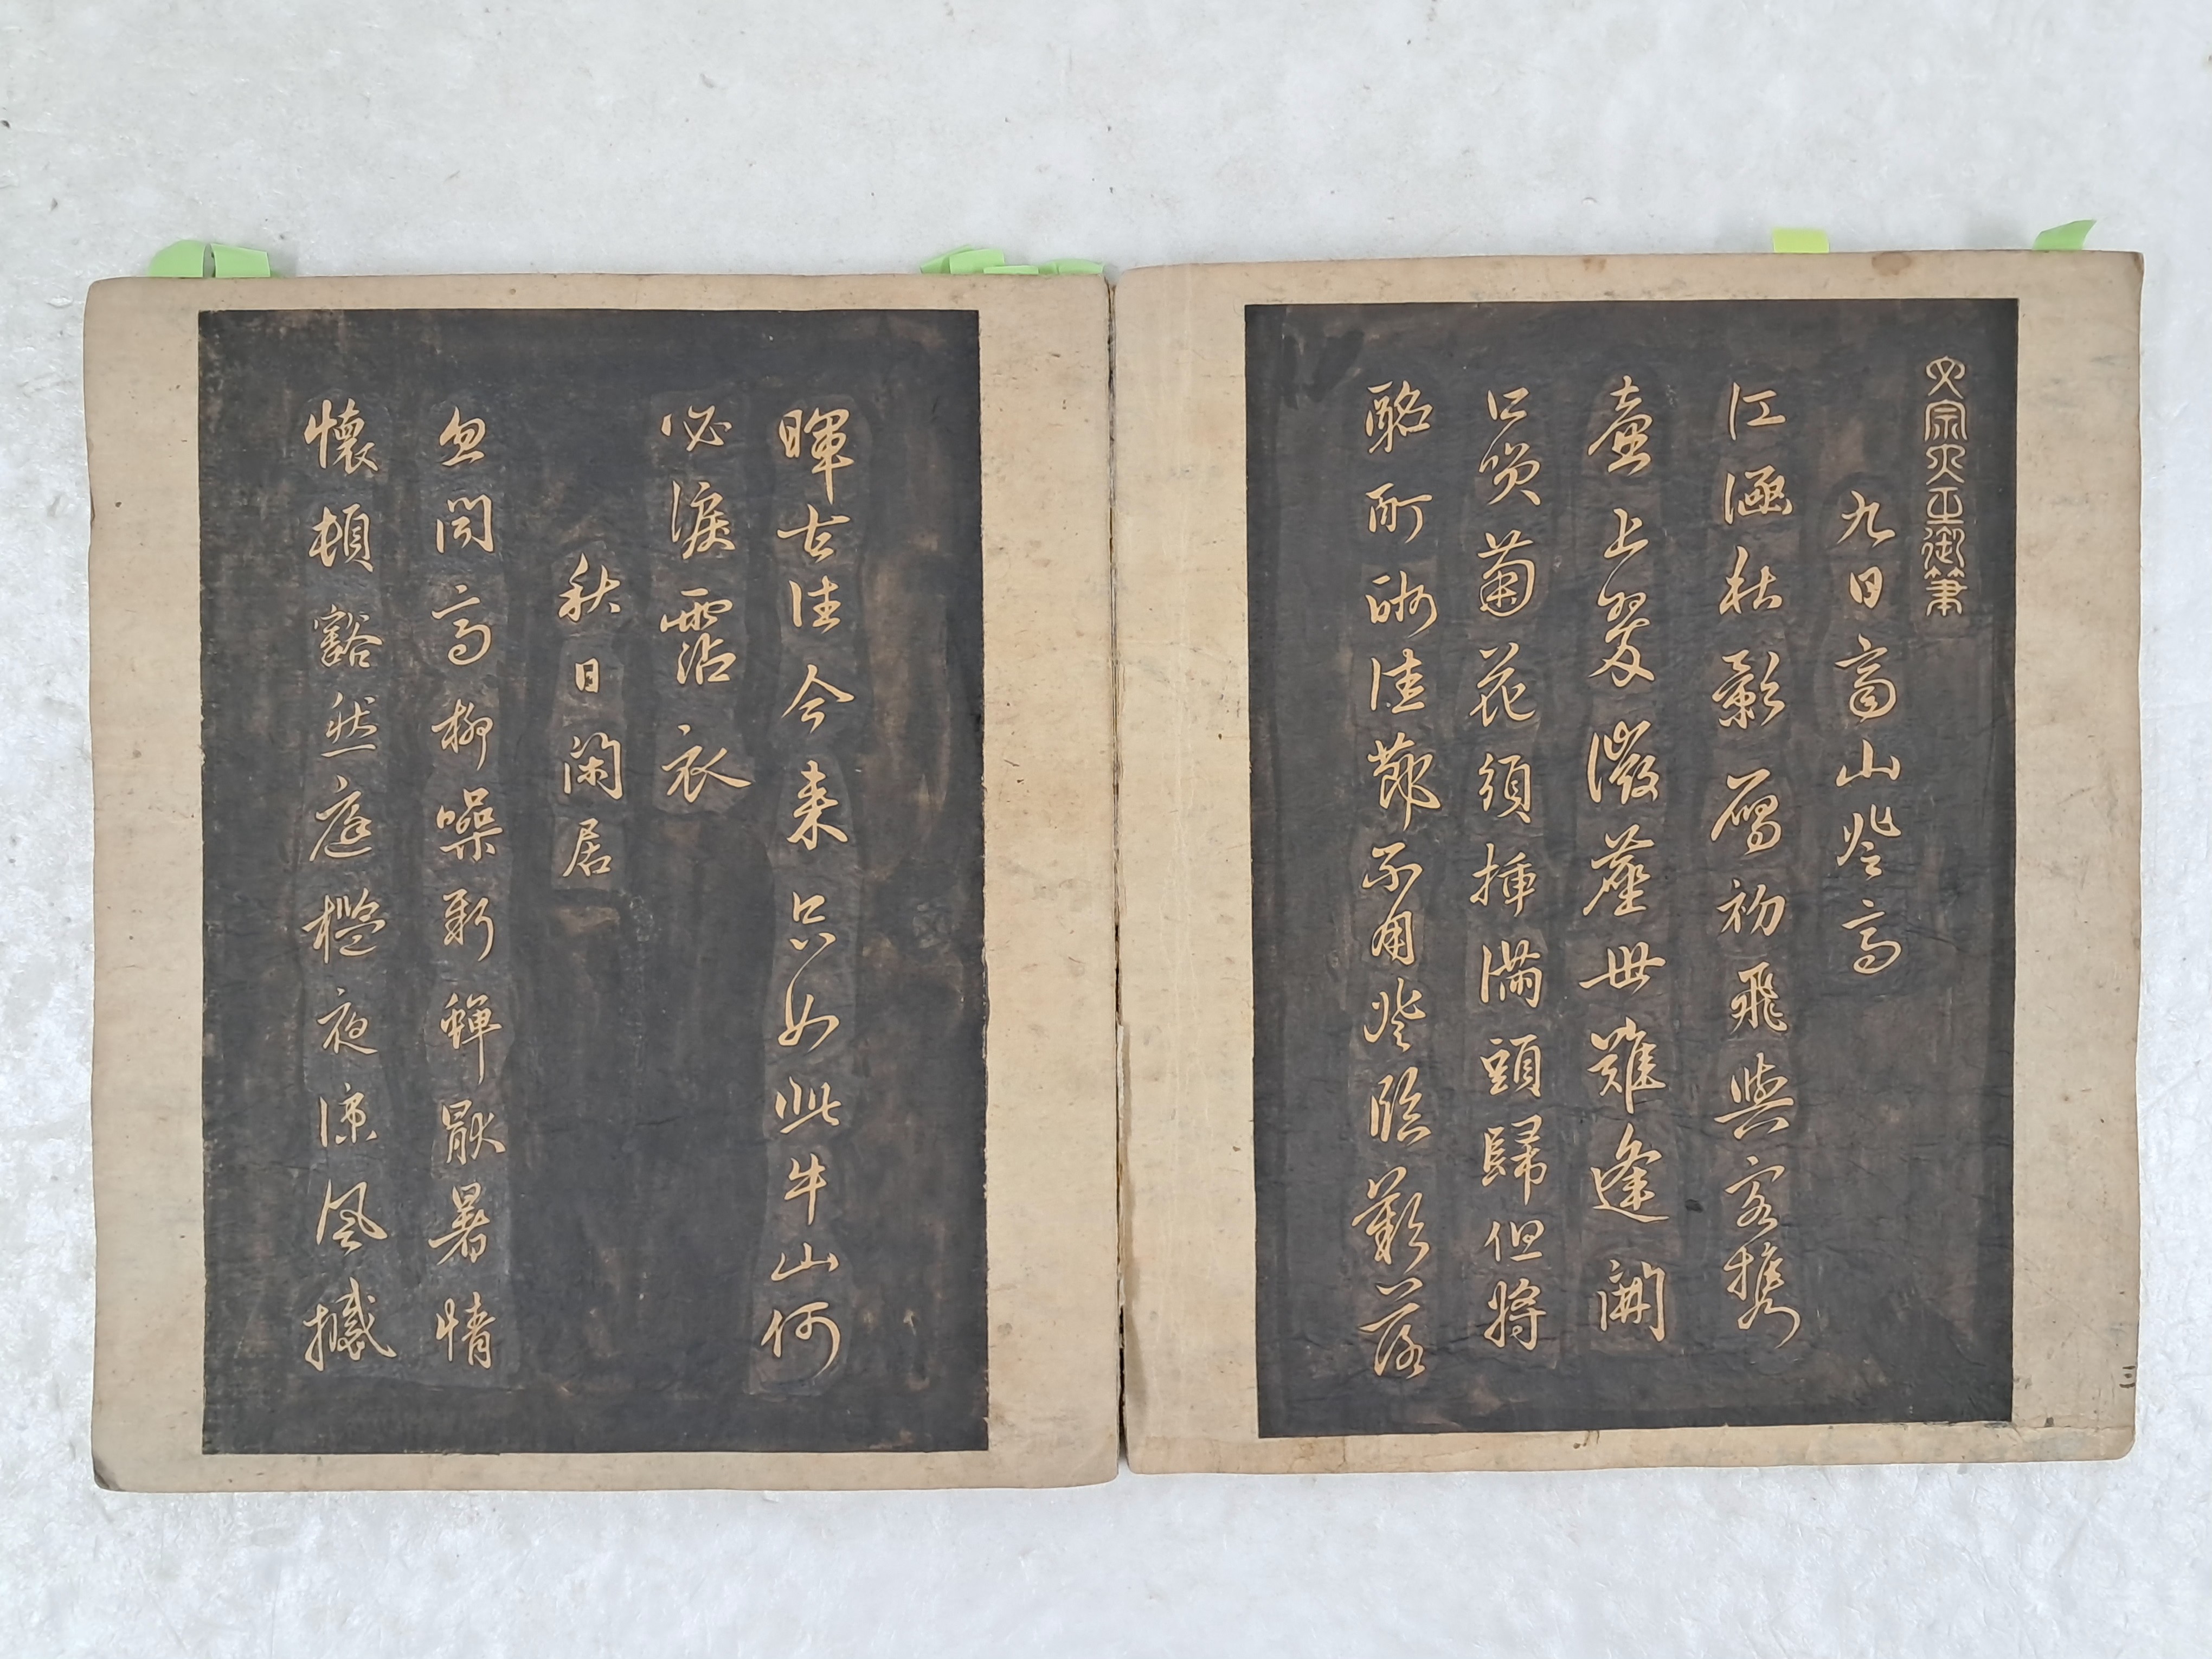 文宗大王御筆
九日齊山登高
江涵秋影鴈初飛與客携
壺上翠微塵世難逢開
口笑菊花須揷滿頭歸但將
酩酊酬佳節不用登臨歎落
暉古往今来只如此牛山何
必淚霑衣
秋日閑居
忽聞高柳噪新蟬厭暑情
懷頓豁然庭檻夜凉風撼
三